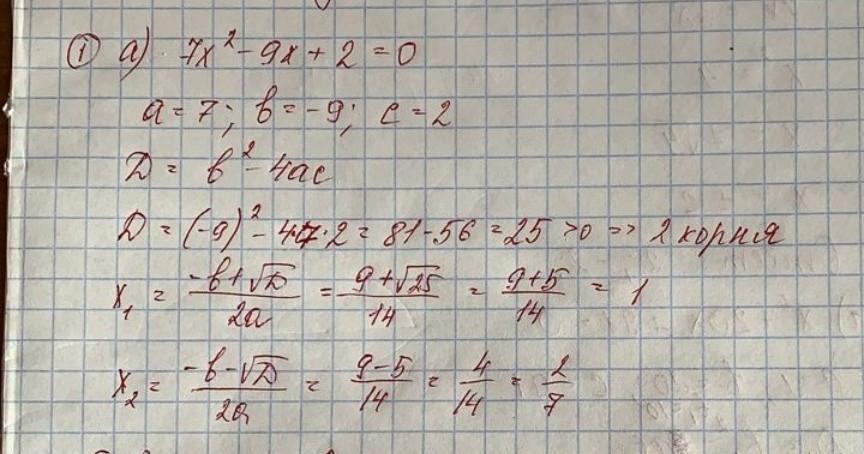 ① а) 7x² - 9x + 2 = 0
a = 7; b = -9; c = 2
D = b² - 4ac
D = (-9)² - 4·7·2 = 81 - 56 = 25 > 0 => 2 корня
x₁ = (-b + √D)/(2a) = (9 + √25)/14 = (9 + 5)/14 = 1
x₂ = (-b - √D)/(2a) = (9 - 5)/14 = 4/14 = 2/7